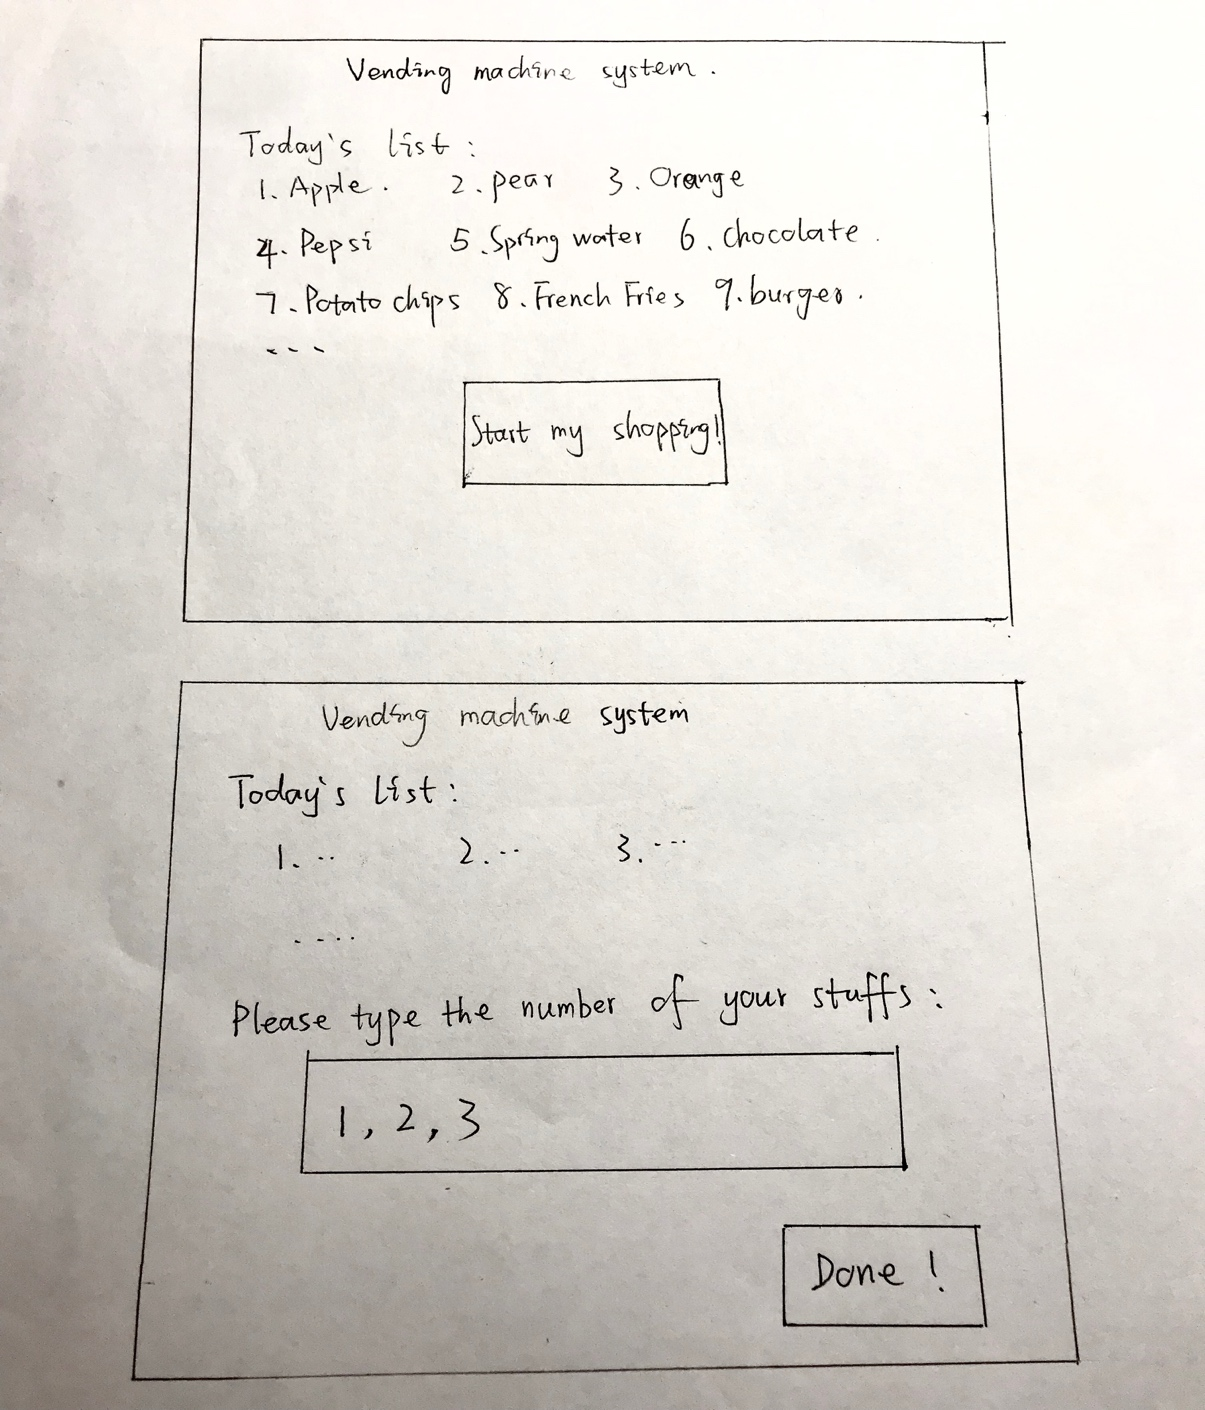 Vending machine system.
Today's list:
1. Apple. 2. pear 3. Orange
4. Pepsi 5. Spring water 6. chocolate.
7. Potato chips 8. French Fries 9. burger.
---
Start my shopping!
Vending machine system
Today's list:
1. .. 2. ... 3. ...
....
Please type the number of your stuffs:
1, 2, 3
Done!